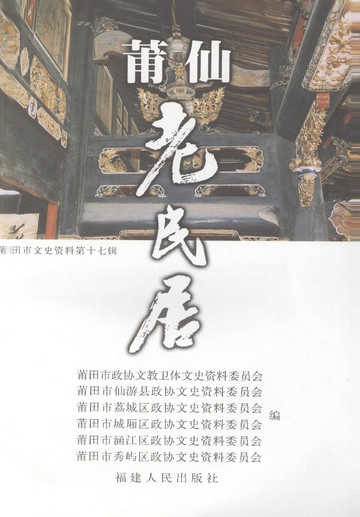 莆仙
老民居
莆田市文史资料第十七辑
莆田市政协文教卫体文史资料委员会
莆田市仙游县政协文史资料委员会
莆田市荔城区政协文史资料委员会
莆田市城厢区政协文史资料委员会
莆田市涵江区政协文史资料委员会
莆田市秀屿区政协文史资料委员会
编
福建人民出版社